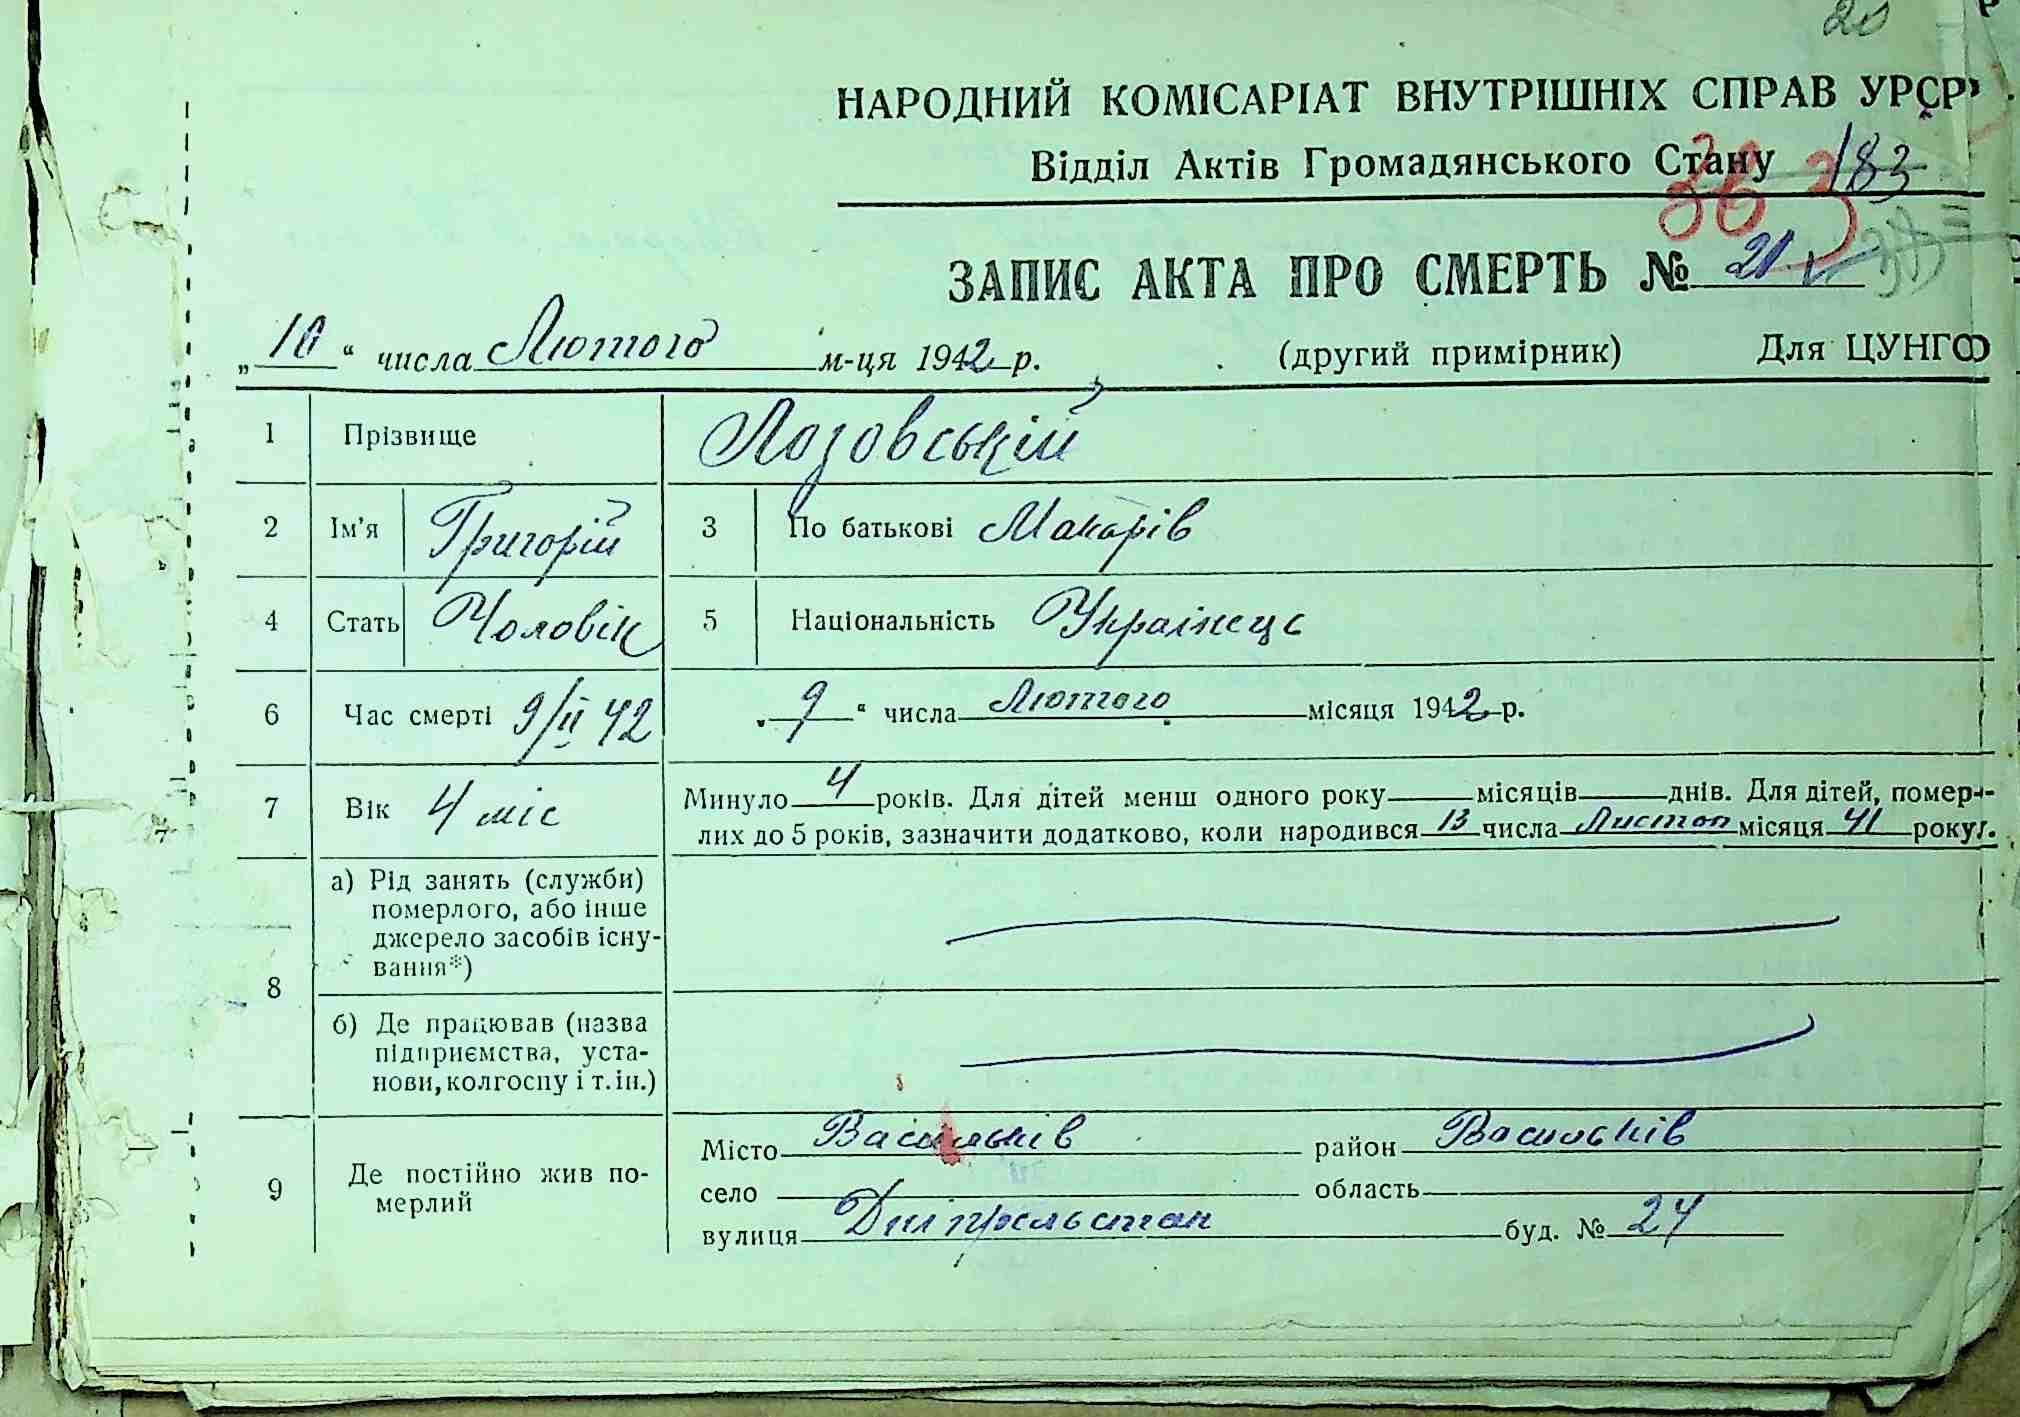 20
НАРОДНИЙ КОМІСАРІАТ ВНУТРІШНІХ СПРАВ УРСР
Відділ Актів Громадянського Стану 183
36
ЗАПИС АКТА ПРО СМЕРТЬ № 21
„10“ числа Лютого м-ця 1942 р. (другий примірник) Для ЦУНГО
1 Прізвище Лозовській
2 Ім'я Григорій 3 По батькові Макарів
4 Стать Чоловік 5 Національність Українець
6 Час смерті 9/II 42 „9“ числа Лютого місяця 1942 р.
7 Вік 4 міс Минуло 4 років. Для дітей менш одного року місяців днів. Для дітей, помер-
лих до 5 років, зазначити додатково, коли народився 13 числа Листоп місяця 41 року.
8 а) Рід занять (служби)
померлого, або інше
джерело засобів існу-
вання*)
б) Де працював (назва
підприємства, уста-
нови, колгоспу і т.ін.)
9 Де постійно жив по-
мерлий
Місто Васильків район Васильків
село область
вулиця Дніпрельстан буд. № 24